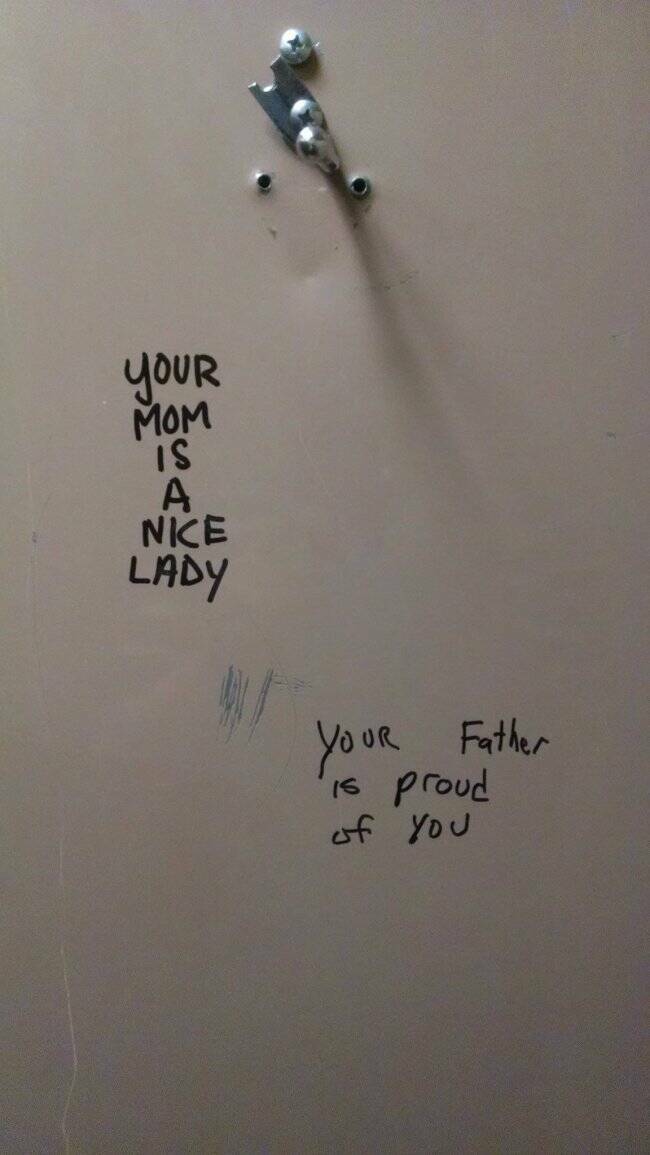 YOUR
MOM
IS
A
NICE
LADY
YOUR Father
is proud
of YOU